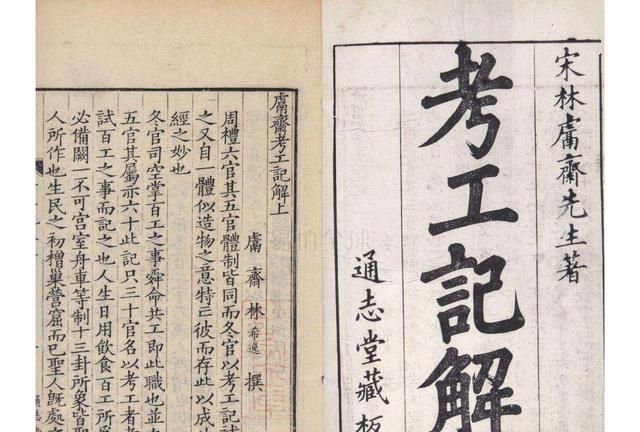 宋林鬳齋先生著
考工記解
通志堂藏板
鬳齋考工記解上
鬳齋林希逸撰
周禮六官其五官體制皆同而冬官以考工記
之又自體似造物之意特云彼而存此以成
經之妙也
冬官司空掌百工之事舜命共工即此職也並
五官其屬亦六十此記只三十官名以考工者
試百工之事而記之也人生日用飲食百工所
必備闕一不可宮室舟車等制十三卦所象皆聖
人所作也生民之初橧巢營窟而已聖人旣處